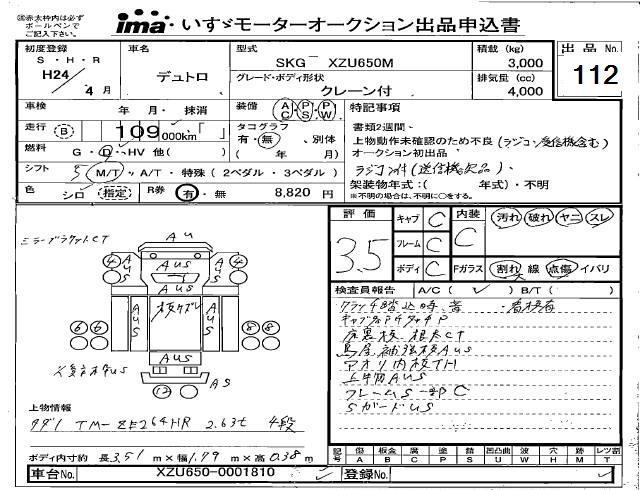 ㊟赤太枠内は必ず
ボールペンで
ご記入下さい。
ima いすゞモーターオークション出品申込書
初度登録
S・H・R
H24
4月
車名
デュトロ
型式
SKG XZU650M
グレード・ボディ形状
クレーン付
積載 (kg)
3,000
排気量 (cc)
4,000
出品 No.
112
車検 年 月・抹消
装備 AC PS PW
特記事項
走行 B 109000km「 」
タコグラフ
有・無 別体
( 年 月)
燃料 G・D・HV 他( )
書類2週間
上物動作未確認のため不良(ラジコン受信機含む)
オークション初出品
シフト 5 M/T・A/T・特殊(2ペダル・3ペダル)
ラジコン付(送信機欠品)、
架装物年式:( 年式)・不明
※不明の場合は、不明に○をする。
色 シロ 指定 R券 有・無 8,820円
評価
3.5
キャブ C
フレーム C
ボディ C
内装
C
汚れ 破れ ヤニ スレ
Fガラス 割れ 線 点傷 イバリ
ミラーブラケットCT
AU
4
AUS
AUS
AUS
4
AUS
AUS
6 6
8 8
AUS
AS
12
検査員報告 A/C( ) B/T( )
キャブ
床裏板、根太CT
鳥居 補強板AUS
アオリ内板TH
上物AUS
フレーム一部C
SガードUS
上物情報
タダノ TM-ZE264HR 2.63t 4段
ボディ内寸約 長3.51m×幅1.79m×高0.38m
記号 傷 A 凹 B 板金 C 腐 塗 S 錆 U 凹凸曲 W 波 H 穴 M 跡 T レンズ割
車台No. XZU650-0001810
登録No.